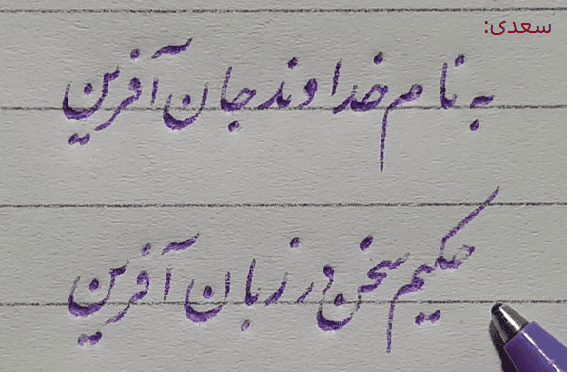 سعدی:
به نام خداوند جان آفرین
حکیم سخن در زبان آفرین